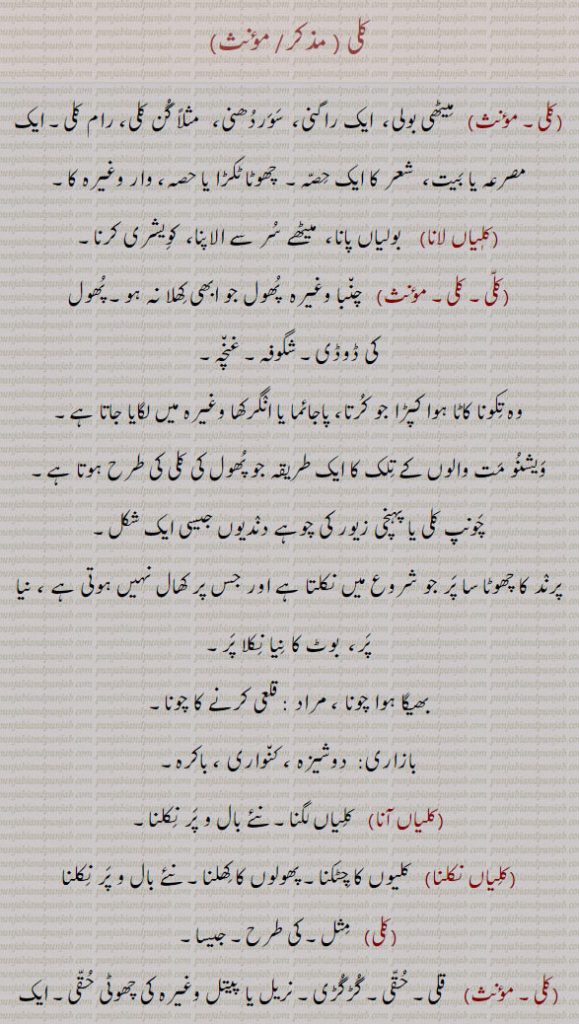 کلی ( مذکر/ مؤنث)
(کلی ۔ مؤنث) مِیٹھی بولی، ایک راگنی، سَوَر دُھنی، مثلاً گُن کلی، رام کلی ۔ ایک
مصرعہ یا بیت، شعر کا ایک حِصّہ ۔ چھوٹا ٹکڑا یا حصہ، وار وغیرہ کا ۔
(کلِیاں لانا) بولیاں پانا، میٹھے سُر سے الاپنا، کوِیشری کرنا ۔
(کلّی ۔ کَلی ۔ مؤنث) چنّبا وغیرہ پُھول جو ابھی کِھلا نہ ہو ۔ پُھول
کی ڈوڈی ۔ شگوفہ ۔ غنچّہ ۔
وہ تِکونا کاٹا ہوا کپڑا جو کُرتا، پاجائما یا انگرکھا وغیرہ میں لگایا جاتا ہے ۔
وَیشنُو مَت والوں کے تِلک کا ایک طریقہ جو پُھول کی کلی کی طرح ہوتا ہے ۔
چَونپ کلی یا پہنچی زیور کی چوہے دندیوں جیسی ایک شکل ۔
پرند کا چھوٹا سا پَر جو شروع میں نکلتا ہے اور جس پر کھال نہیں ہوتی ہے ، نیا
پَر، بوٹ کا نِیا نِکلا پَر ۔
بھیگا ہوا چونا ، مراد : قلعی کرنے کا چونا ۔
بازاری: دوشیزہ ، کنّواری ، باکرہ ۔
(کلیاں آنا) کلِیاں لگنا ۔ نئے بال و پَر نِکلنا ۔
(کلِیاں نکلنا) کلیوں کا چٹکنا ۔ پھولوں کا کِھلنا ۔ نئے بال و پَر نِکلنا
(کلی) مِثل ۔ کی طرح ۔ جیسا ۔
(کلی ۔ مؤنث) قلی ۔ حُقّی ۔ گُڑگُڑی ۔ نریل یا پیتل وغیرہ کی چھوٹی حُقّی ۔ ایک